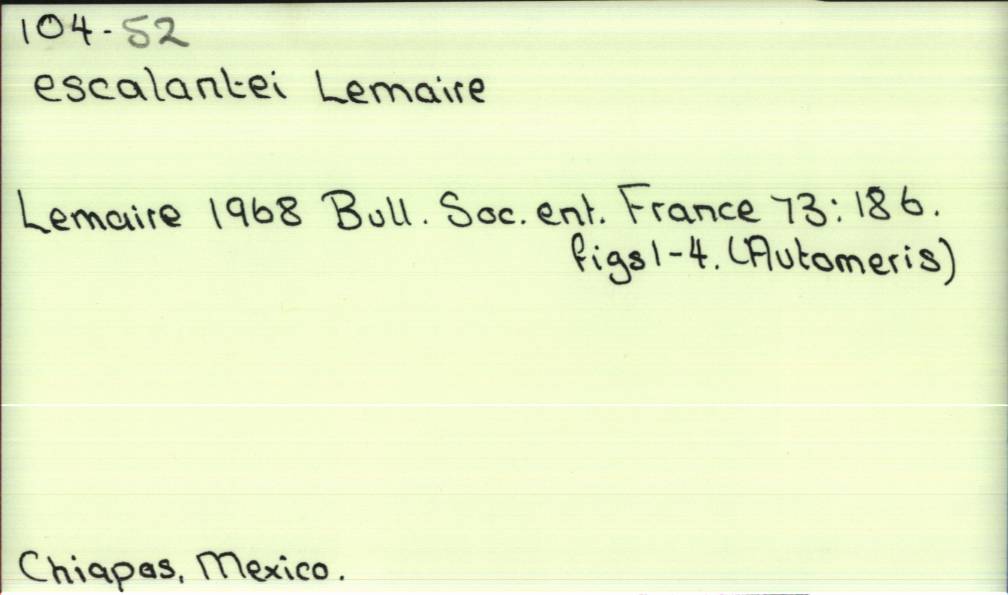 104-52
escalantei Lemaire
Lemaire 1968 Bull. Soc. ent. France 73: 186.
figs 1-4. (Automeris)
Chiapas, Mexico.